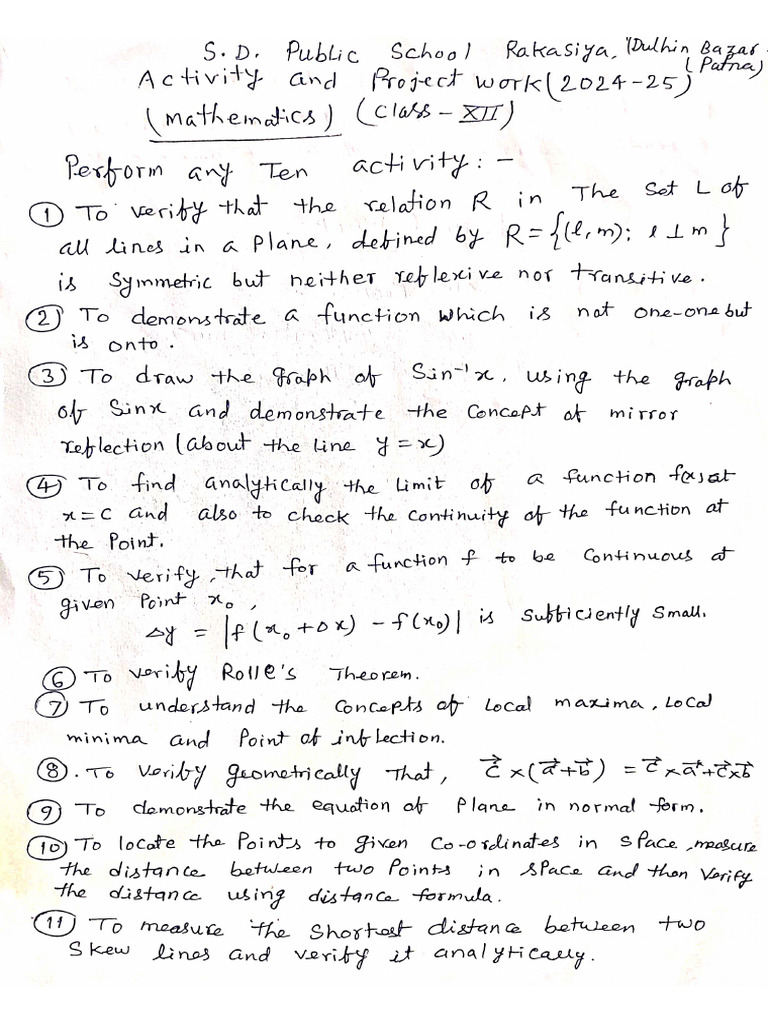 S.D. Public School Rakasiya, Dulhin Bazar
(Patna)
Activity and Project work (2024-25)
(Mathematics) (Class - XII)
Perform any Ten activity: -
① To verify that the relation R in The Set L of
all lines in a Plane, defined by R = {(l, m): l ⊥ m}
is Symmetric but neither reflexive nor transitive.
② To demonstrate a function which is not one-one but
is onto.
③ To draw the graph of Sin⁻¹x, using the graph
of Sinx and demonstrate the Concept of mirror
reflection (about the line y = x)
④ To find analytically the Limit of a function f(x) at
x = c and also to check the continuity of the function at
the Point.
⑤ To verify, that for a function f to be Continuous at
given Point x₀,
Δy = |f(x₀ + Δx) - f(x₀)| is Sufficiently Small.
⑥ To verify Rolle's Theorem.
⑦ To understand the Concepts of Local maxima, Local
minima and Point of inflection.
⑧. To Verify geometrically That, c⃗ × (a⃗ + b⃗) = c⃗ × a⃗ + c⃗ × b⃗
⑨ To demonstrate the equation of Plane in normal form.
⑩ To locate the Points to given Co-ordinates in Space, measure
the distance between two Points in Space and then Verify
the distance using distance formula.
⑪ To measure the Shortest distance between two
Skew lines and verify it analytically.